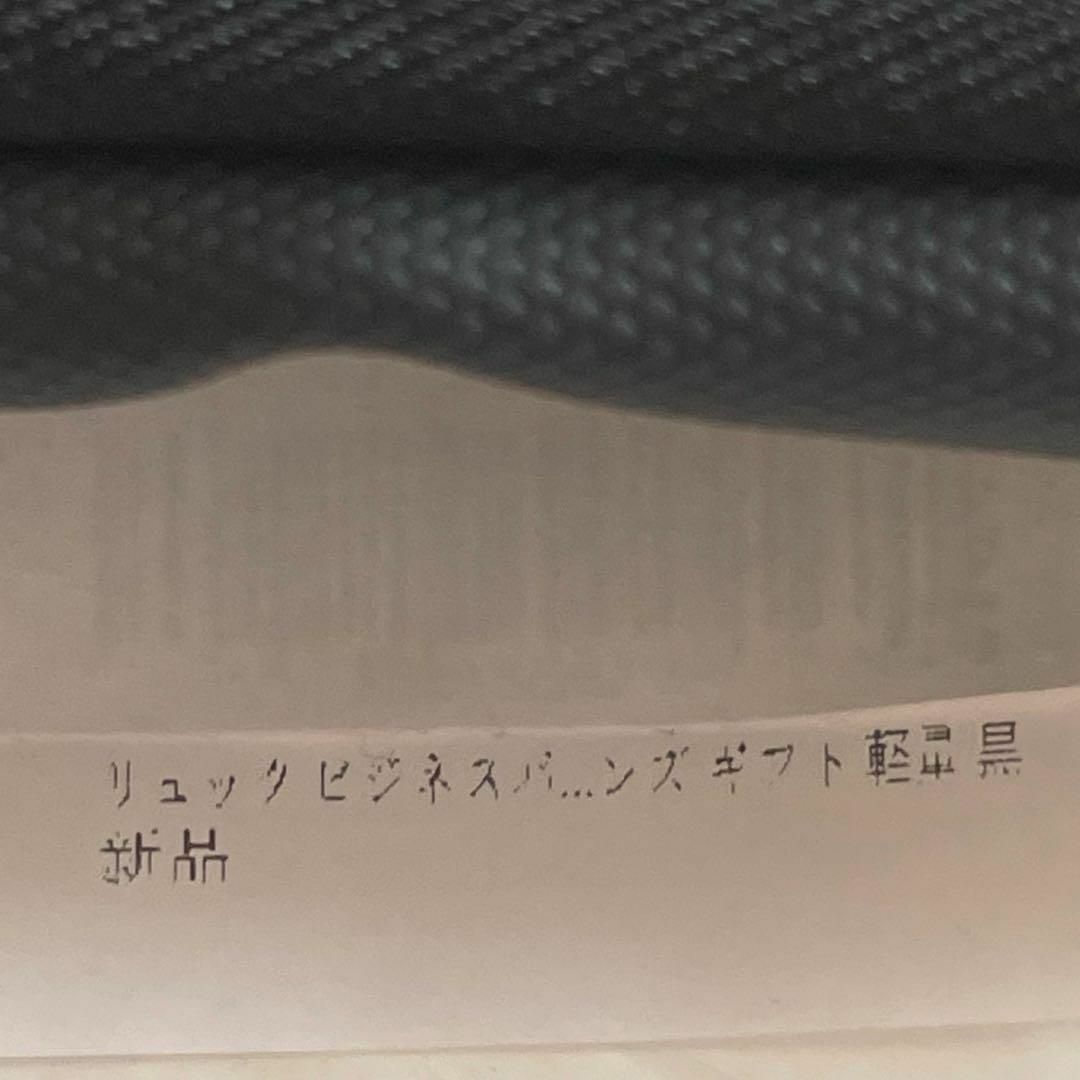 リュック ビジネスバ...ンズ ギフト 軽量 黒
新品